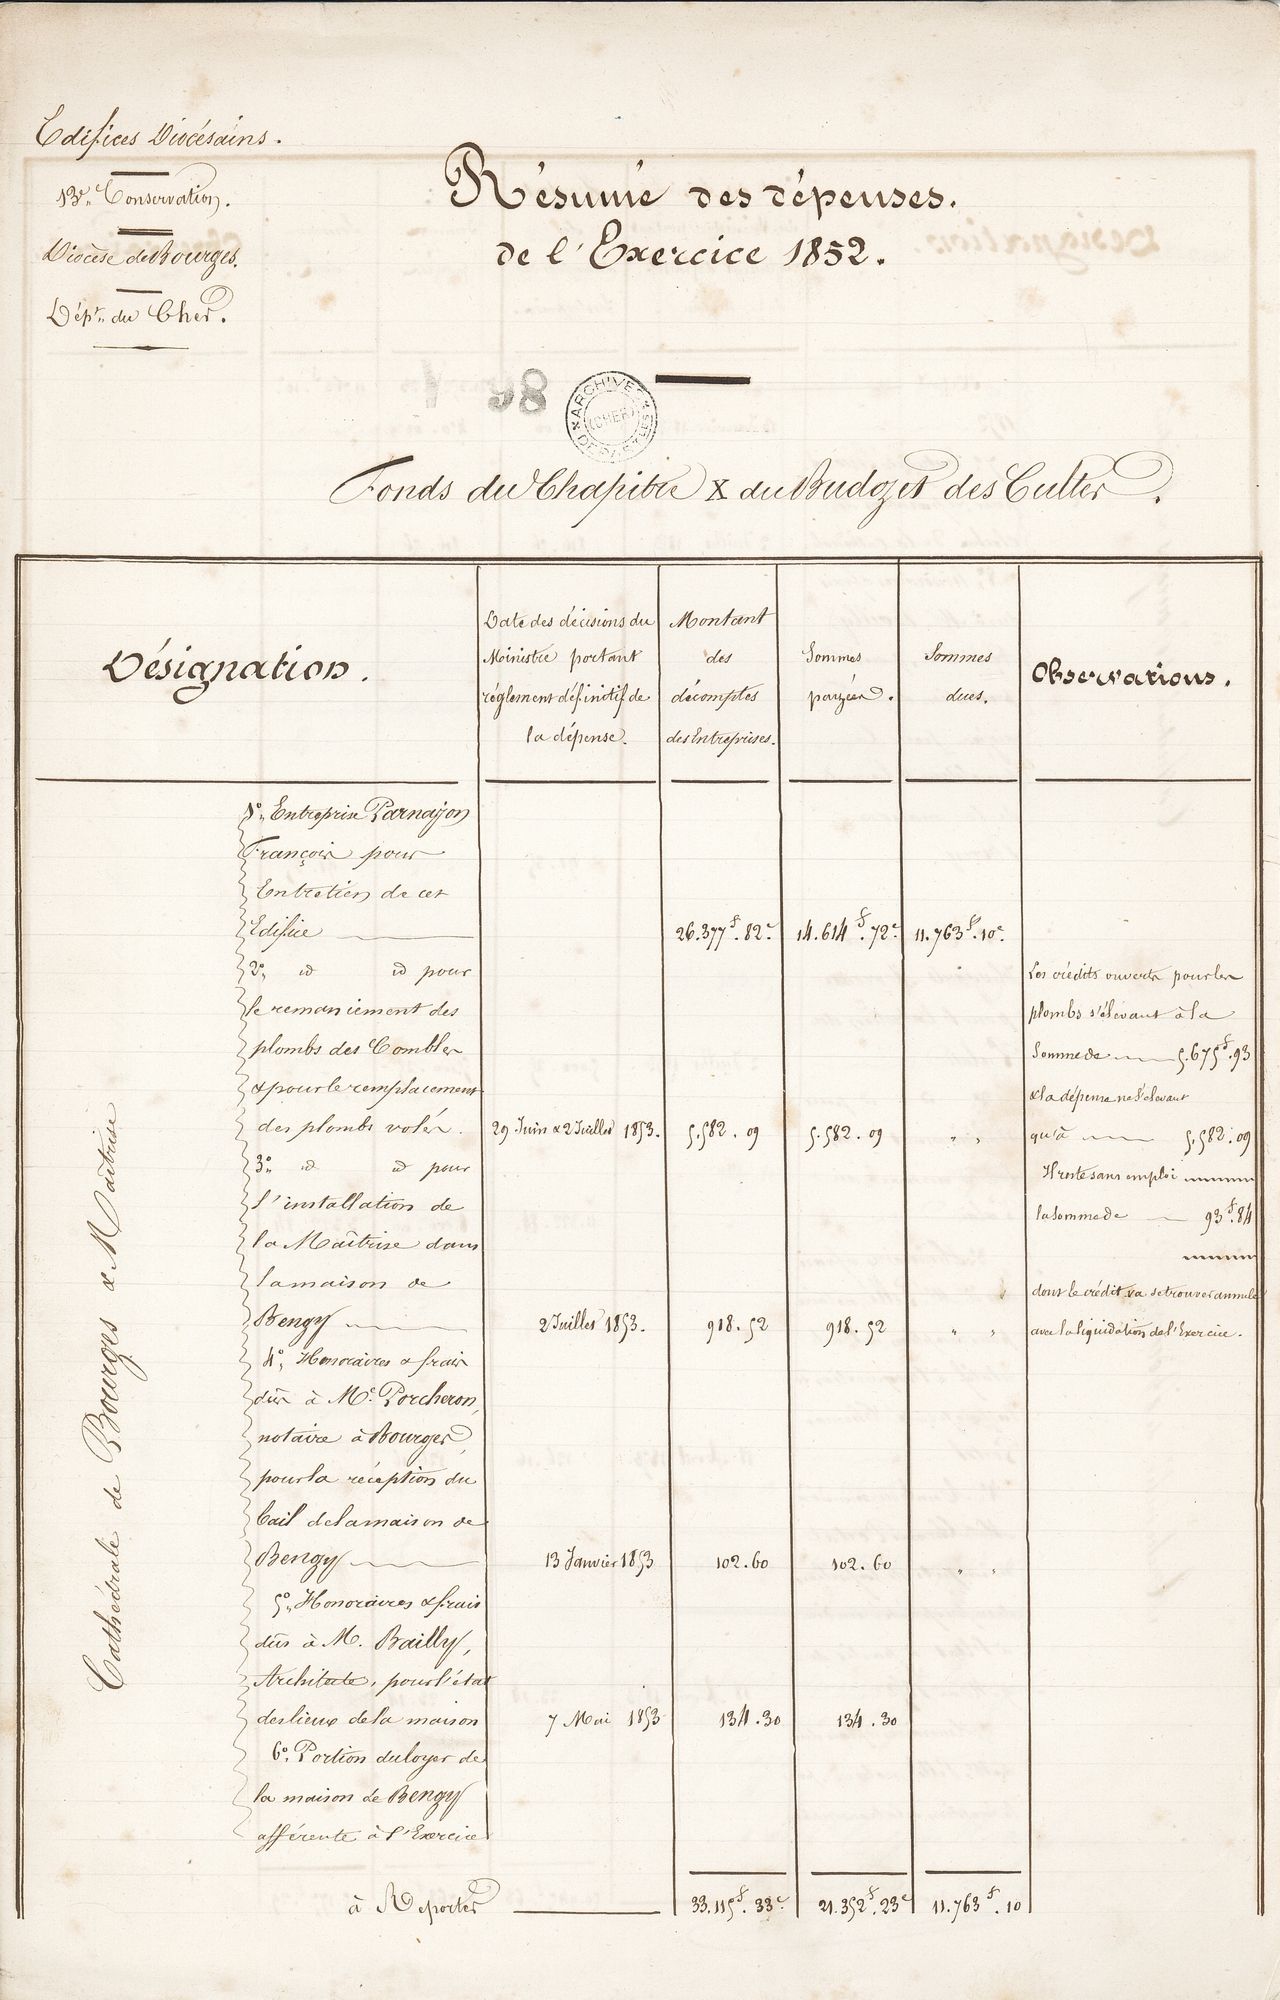 Edifices Diocésains.
13e. Conservation.
Diocèse de Bourges.
Dépt. du Cher.
Résumé des dépenses.
de l'Exercice 1852.
1 98
ARCHIVES
(CHER)
DEPARTLES
Fonds du Chapitre X du Budget des Cultes.
Désignation.
Date des décisions du
Ministre portant
règlement définitif de
la dépense.
Montant
des
décomptes
des Entreprises.
Sommes
payées.
Sommes
dues.
Observations.
Cathédrale de Bourges & Maîtrise
1°. Entreprise Parnajon
François pour
Entretien de cet
Edifice 26.377f.82c. 14.614f.72c. 11.763f.10c.
2°. id id pour
le remaniement des
plombs des Combles
& pour le remplacement
des plombs volés. 29 Juin & 2 Juillet 1853. 5.582.09 5.582.09 " "
3°. id id pour
l'installation de
la Maîtrise dans
la maison de
Bengy 2 Juillet 1853. 918.52 918.52 " "
4°. Honoraires & frais
dûs à Me. Porcheron,
notaire à Bourges,
pour la réception du
bail de la maison de
Bengy 13 Janvier 1853 102.60 102.60 " "
5°. Honoraires & frais
dûs à M. Bailly,
Architecte, pour l'état
des lieux de la maison 7 Mai 1853 134.30 134.30
6°. Portion du loyer de
la maison de Bengy
afférente à l'Exercice
Les crédits ouverts pour les
plombs s'élevant à la
Somme de 5.675f.93
& la dépense ne s'élevant
qu'à 5.582.09
Il reste sans emploi
la somme de 93f.84
dont le crédit va se trouver annulé
avec la liquidation de l'Exercice.
à Reporter 33.115f.33c 21.352f.23c 11.763f.10